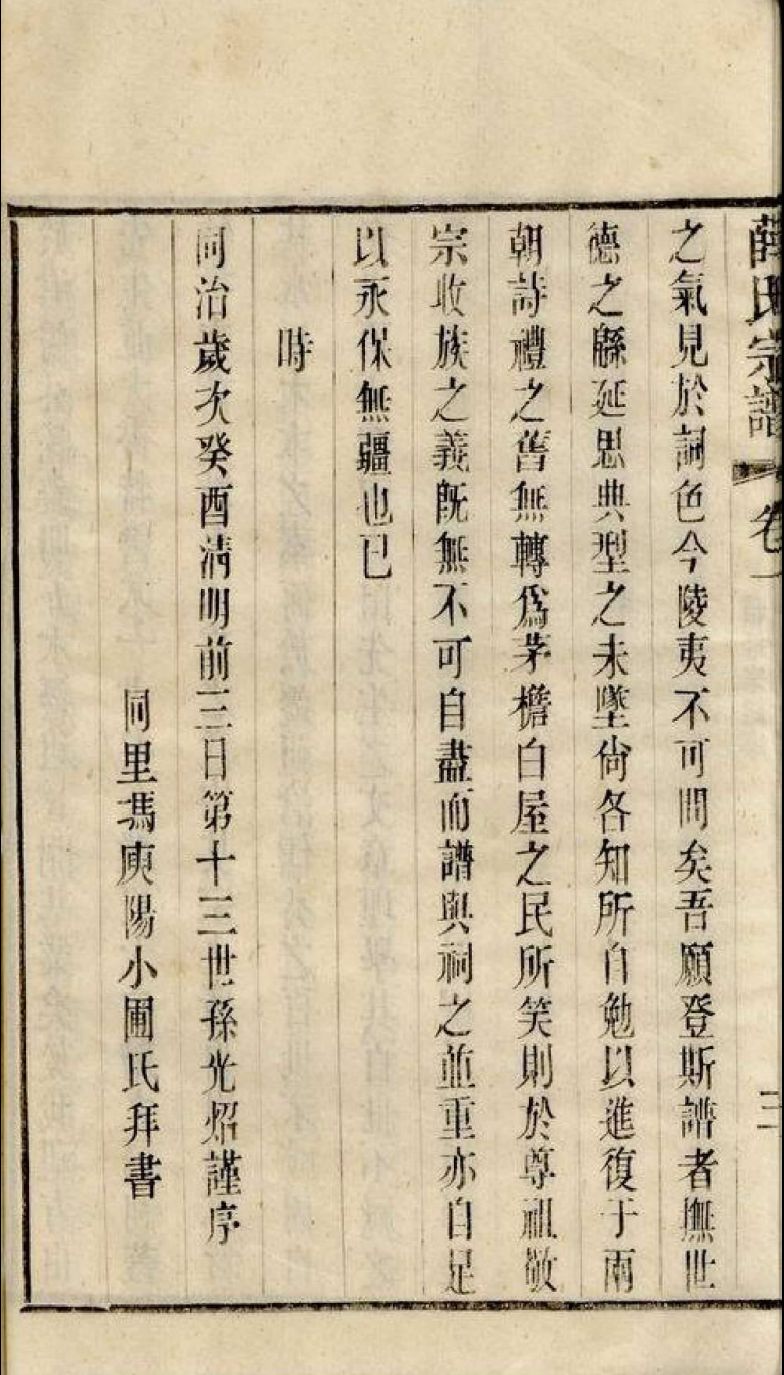 薛氏宗譜 卷一 三
之氣見於詞色今陵夷不可問矣吾願登斯譜者撫世
德之緜延思典型之未墜尙各知所自勉以進復于兩
朝詩禮之舊無轉爲茅檐白屋之民所笑則於尊祖敬
宗收族之義旣無不可自盡而譜與祠之並重亦自足
以永保無疆也已
時
同治歲次癸酉淸明前三日第十三世孫光炤謹序
同里馮庾陽小圃氏拜書